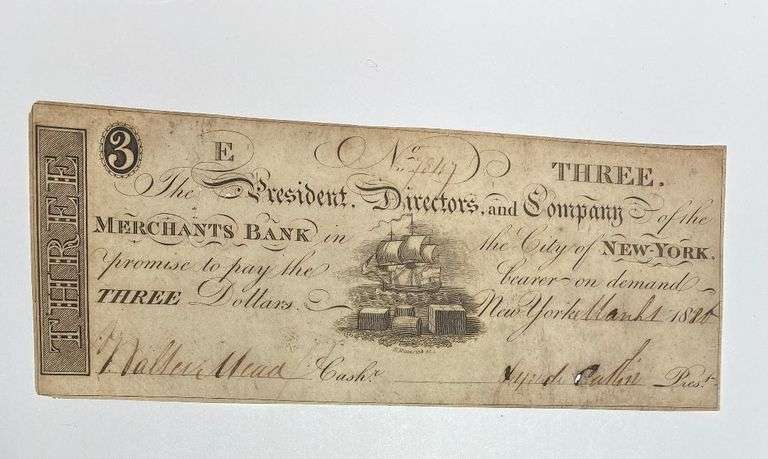 THREE
3 E No. THREE.
The President, Directors, and Company of the
MERCHANTS BANK in the City of NEW-YORK.
promise to pay the bearer on demand
THREE Dollars. New York March 1 1820
Walter Mead Cashr. Prest.